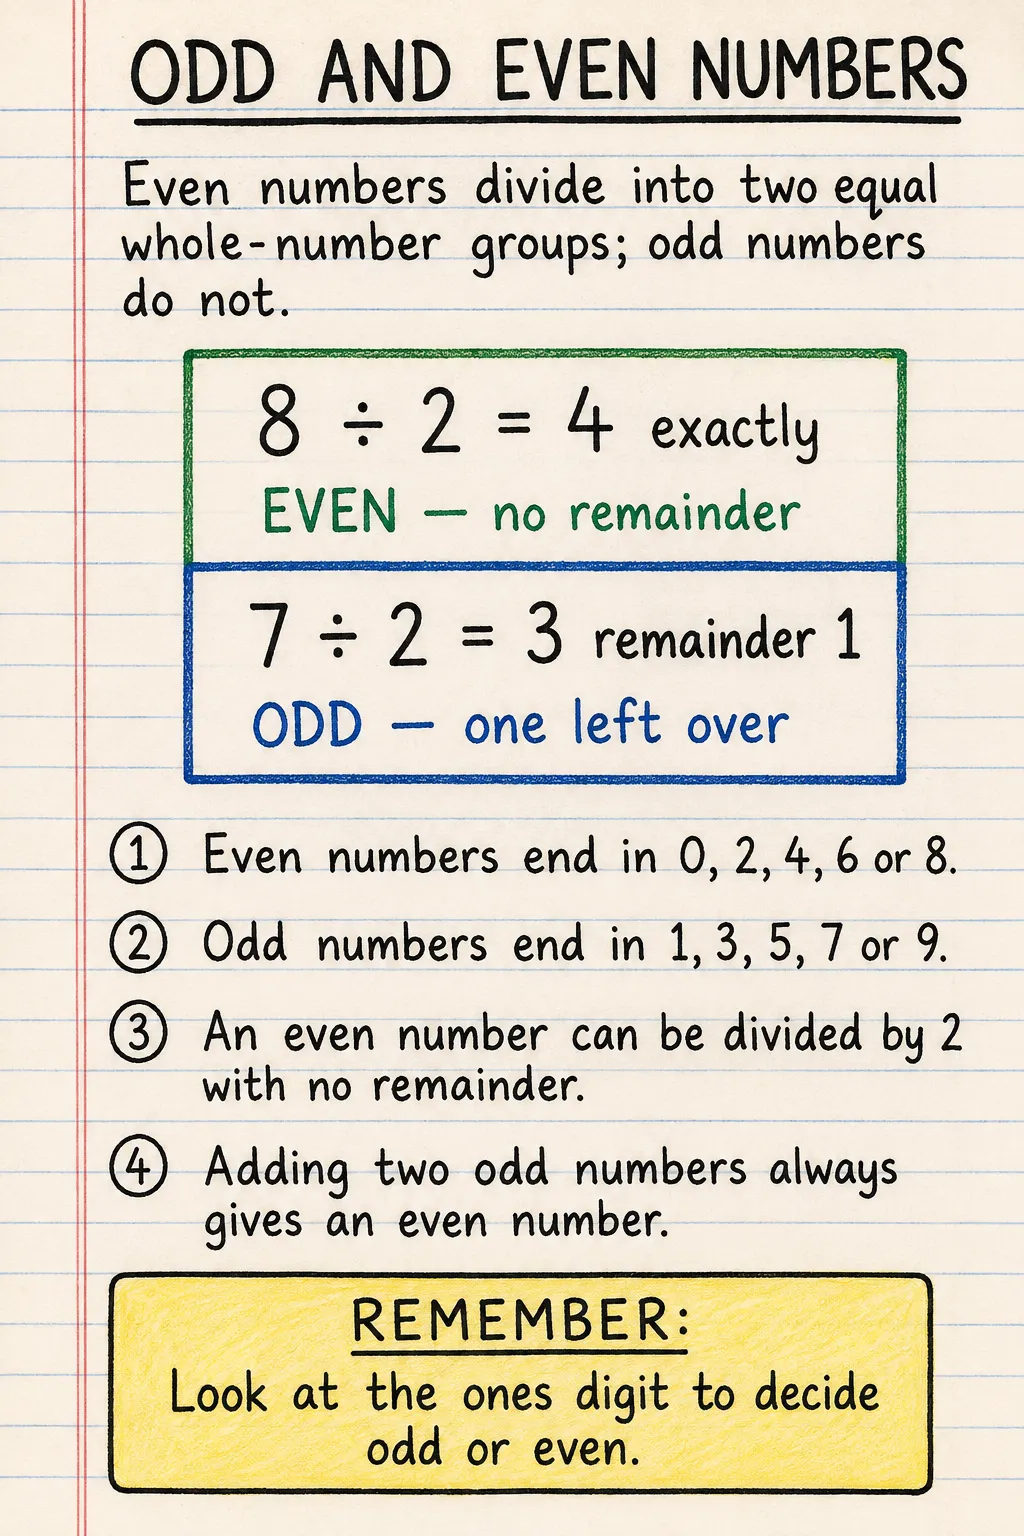 ODD AND EVEN NUMBERS
Even numbers divide into two equal
whole-number groups; odd numbers
do not.
8 ÷ 2 = 4 exactly
EVEN — no remainder
7 ÷ 2 = 3 remainder 1
ODD — one left over
① Even numbers end in 0, 2, 4, 6 or 8.
② Odd numbers end in 1, 3, 5, 7 or 9.
③ An even number can be divided by 2
with no remainder.
④ Adding two odd numbers always
gives an even number.
REMEMBER:
Look at the ones digit to decide
odd or even.